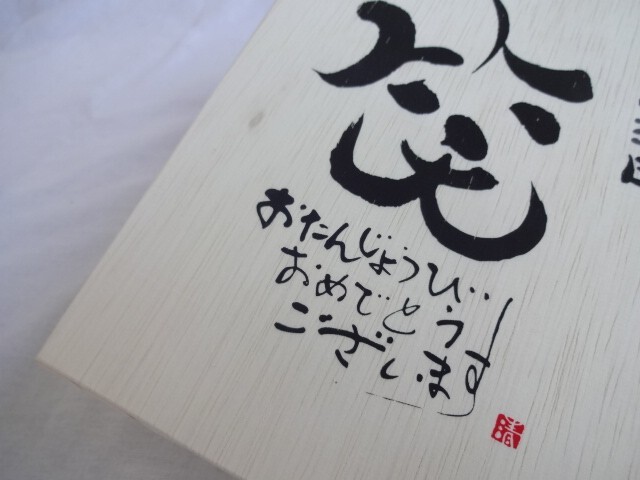 笑
おたんじょうび
おめでとう
ございます